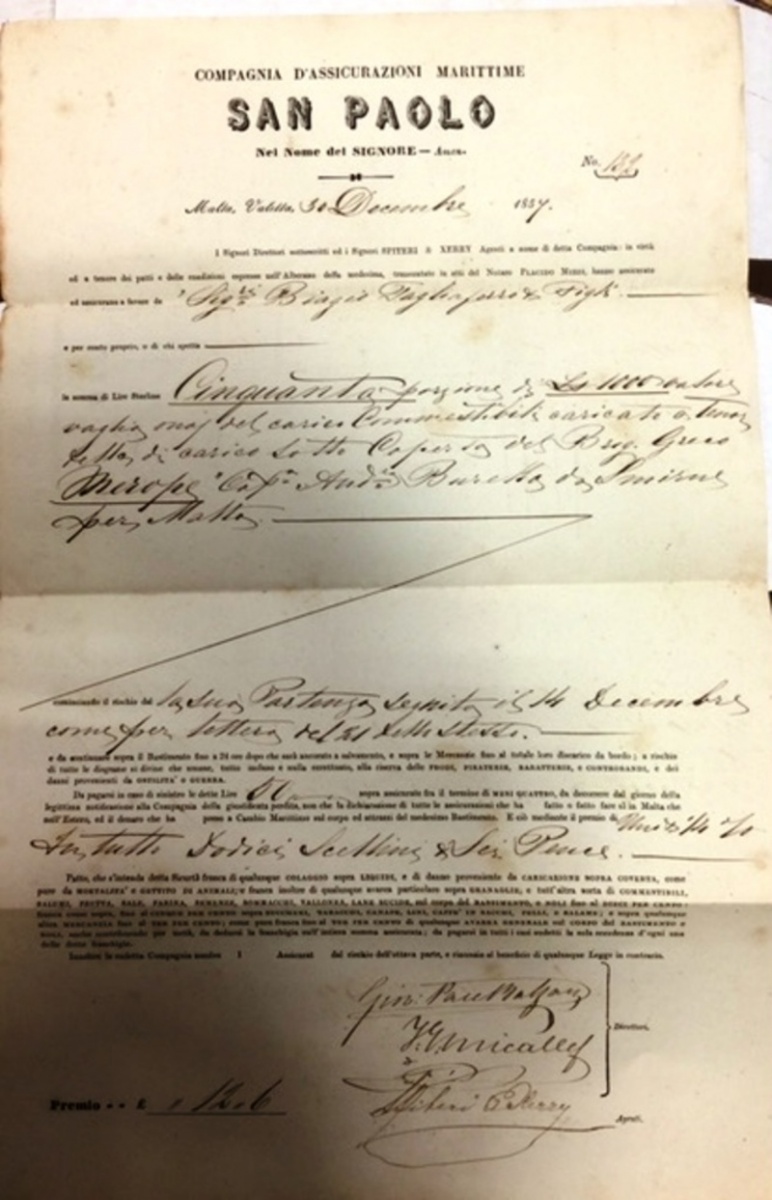 COMPAGNIA D'ASSICURAZIONI MARITTIME
SAN PAOLO
Nel Nome del SIGNORE — Amen.
No. 132
Malta, Valetta, 30 Decembre 1857.
I Signori Direttori sottoscritti ed i Signori SPITERI & XERRY Agenti a nome di detta Compagnia: in virtù
ed a tenore dei patti e delle condizioni espresse nell'Alberano della medesima, transuntato in atti del Notaro PLACIDO MIFSUD, hanno assicurato
ed assicurano a favore de Sigri. Biagio Tagliaferro & Figli
e per conto proprio, o di chi spetta
la somma di Lire Sterline Cinquanta porzione di Ls 1000 valore
vaglia del carico Commestibili caricato a tenor
di carico sotto Coperta del Brig. Greco
"Merope" Capn. Andra. Buretta da Smirne
per Malta
cominciando il rischio dal la sua Partenza seguita il 14 Decembre
come per lettera del 21 dello stesso.
e da continuare sopra il Bastimento fino a 24 ore dopo che sarà ancorato a salvamento, e sopra le Mercanzie fino al totale loro discarico da bordo; a rischio
di tutte le disgrazie si divine che umane, tutto incluso e nulla eccettuato, alla riserva delle FRODI, PIRATERIE, BARATTERIE, e CONTROBANDI, e dei
danni provenienti da OSTILITA' o GUERRA.
Da pagarsi in caso di sinistro le dette Lire 50 sopra assicurate fra il termine di MESI QUATTRO, da decorrere dal giorno della
legittima notificazione alla Compagnia della giustificata perdita, non che la dichiarazione di tutte le assicurazioni che ha fatto o fatto fare si in Malta che
nell'Estero, ed il denaro che ha preso a Cambio Marittimo sul corpo ed attrezzi del medesimo Bastimento. E ciò mediante il premio di Uno & 1/4 %
In tutto Dodici Scellini & Sei Pence.
Patto, che s'intenda detta Sicurtà franca di qualunque COLAGGIO sopra LIQUIDI, e di danno proveniente da CARICAZIONE SOPRA COVERTA, come
pure da MORTALITA' e GETTITO DI ANIMALI; e franca inoltre di qualunque avaria particolare sopra GRANAGLIE; e tutt'altra sorta di COMMESTIBILI,
SALUMI, FRUTTA, SALE, FARINA, SEMENZE, BOMBACCHI, VALLONEA, LANE SUCIDE, sul corpo del BASTIMENTO, o NOLI fino al DIECI PER CENTO:
franca come sopra, fino al CINQUE PER CENTO sopra ZUCCHERI, TABACCHI, CANAPE, LINI, CAFFE' IN SACCHI, PELLI, o SALAMI; e sopra qualunque
altra MERCANZIA fino al TRE PER CENTO; come pure franca fino al TRE PER CENTO di qualunque AVARIA GENERALE SUL CORPO DEL BASTIMENTO O
NOLI, anche contribuendo per metà, da dedursi la franchigia sull'intiera somma assicurata; da pagarsi in tutti i casi suddetti la sola eccedenza d'ogni una
delle dette franchigie.
Inoltre la sudetta Compagnia esclude I Assicurat dal rischio dell'ottava parte, e rinunzia al beneficio di qualunque Legge in contrario.
Micallef
Direttori.
Spiteri & Xerry
Agenti.
Premio - - £ " 12 . 6